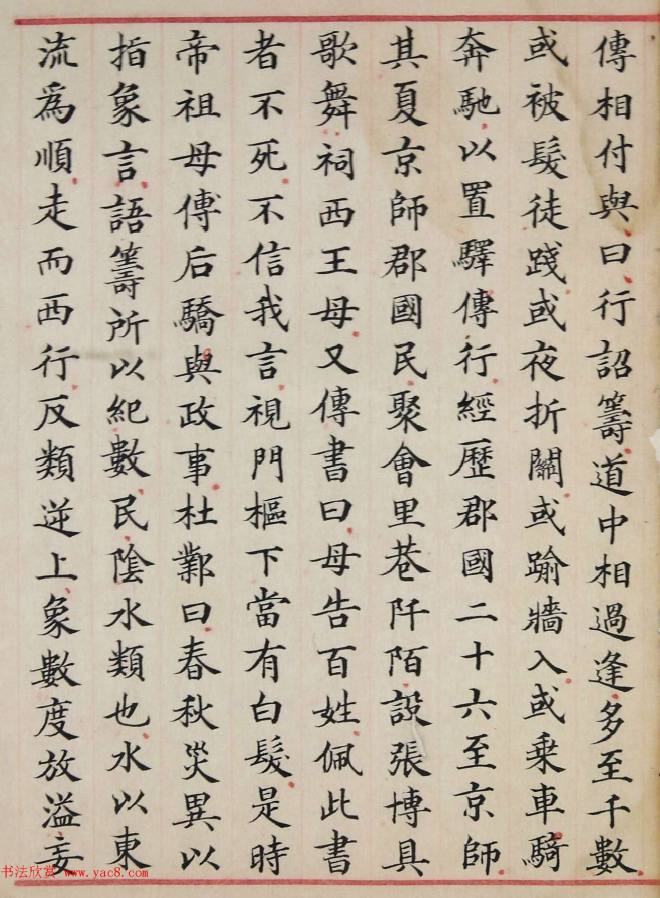 傳相付與曰行詔籌道中相過逢多至千數
或被髮徒踐或夜折關或踰牆入或乗車騎
奔馳以置驛傳行經歷郡國二十六至京師
其夏京師郡國民聚會里巷阡陌設張博具
歌舞祠西王母又傳書曰母告百姓佩此書
者不死不信我言視門樞下當有白髮是時
帝祖母傅后驕與政事杜鄴曰春秋災異以
指象言語籌所以紀數民陰水類也水以東
流為順走而西行反類逆上象數度放溢妄
书法欣赏 www.yac8.com